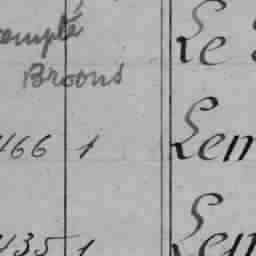 compté Le
Broons
466 1 Lem
435 1 Lem